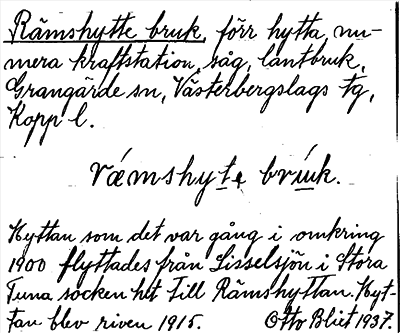 Rämshytte bruk, förr hytta, nu-
mera kraftstation, såg, lantbruk,
Grangärde sn, Västerbergslags tg,
Kopp l.
rámshyte brúk.
Hyttan som det var gång i omkring
1900 flyttades från Lisselsjön i Stora
Tuna socken hit till Rämshyttan. Hyt-
tan blev riven 1915. Otto Blixt 1937.